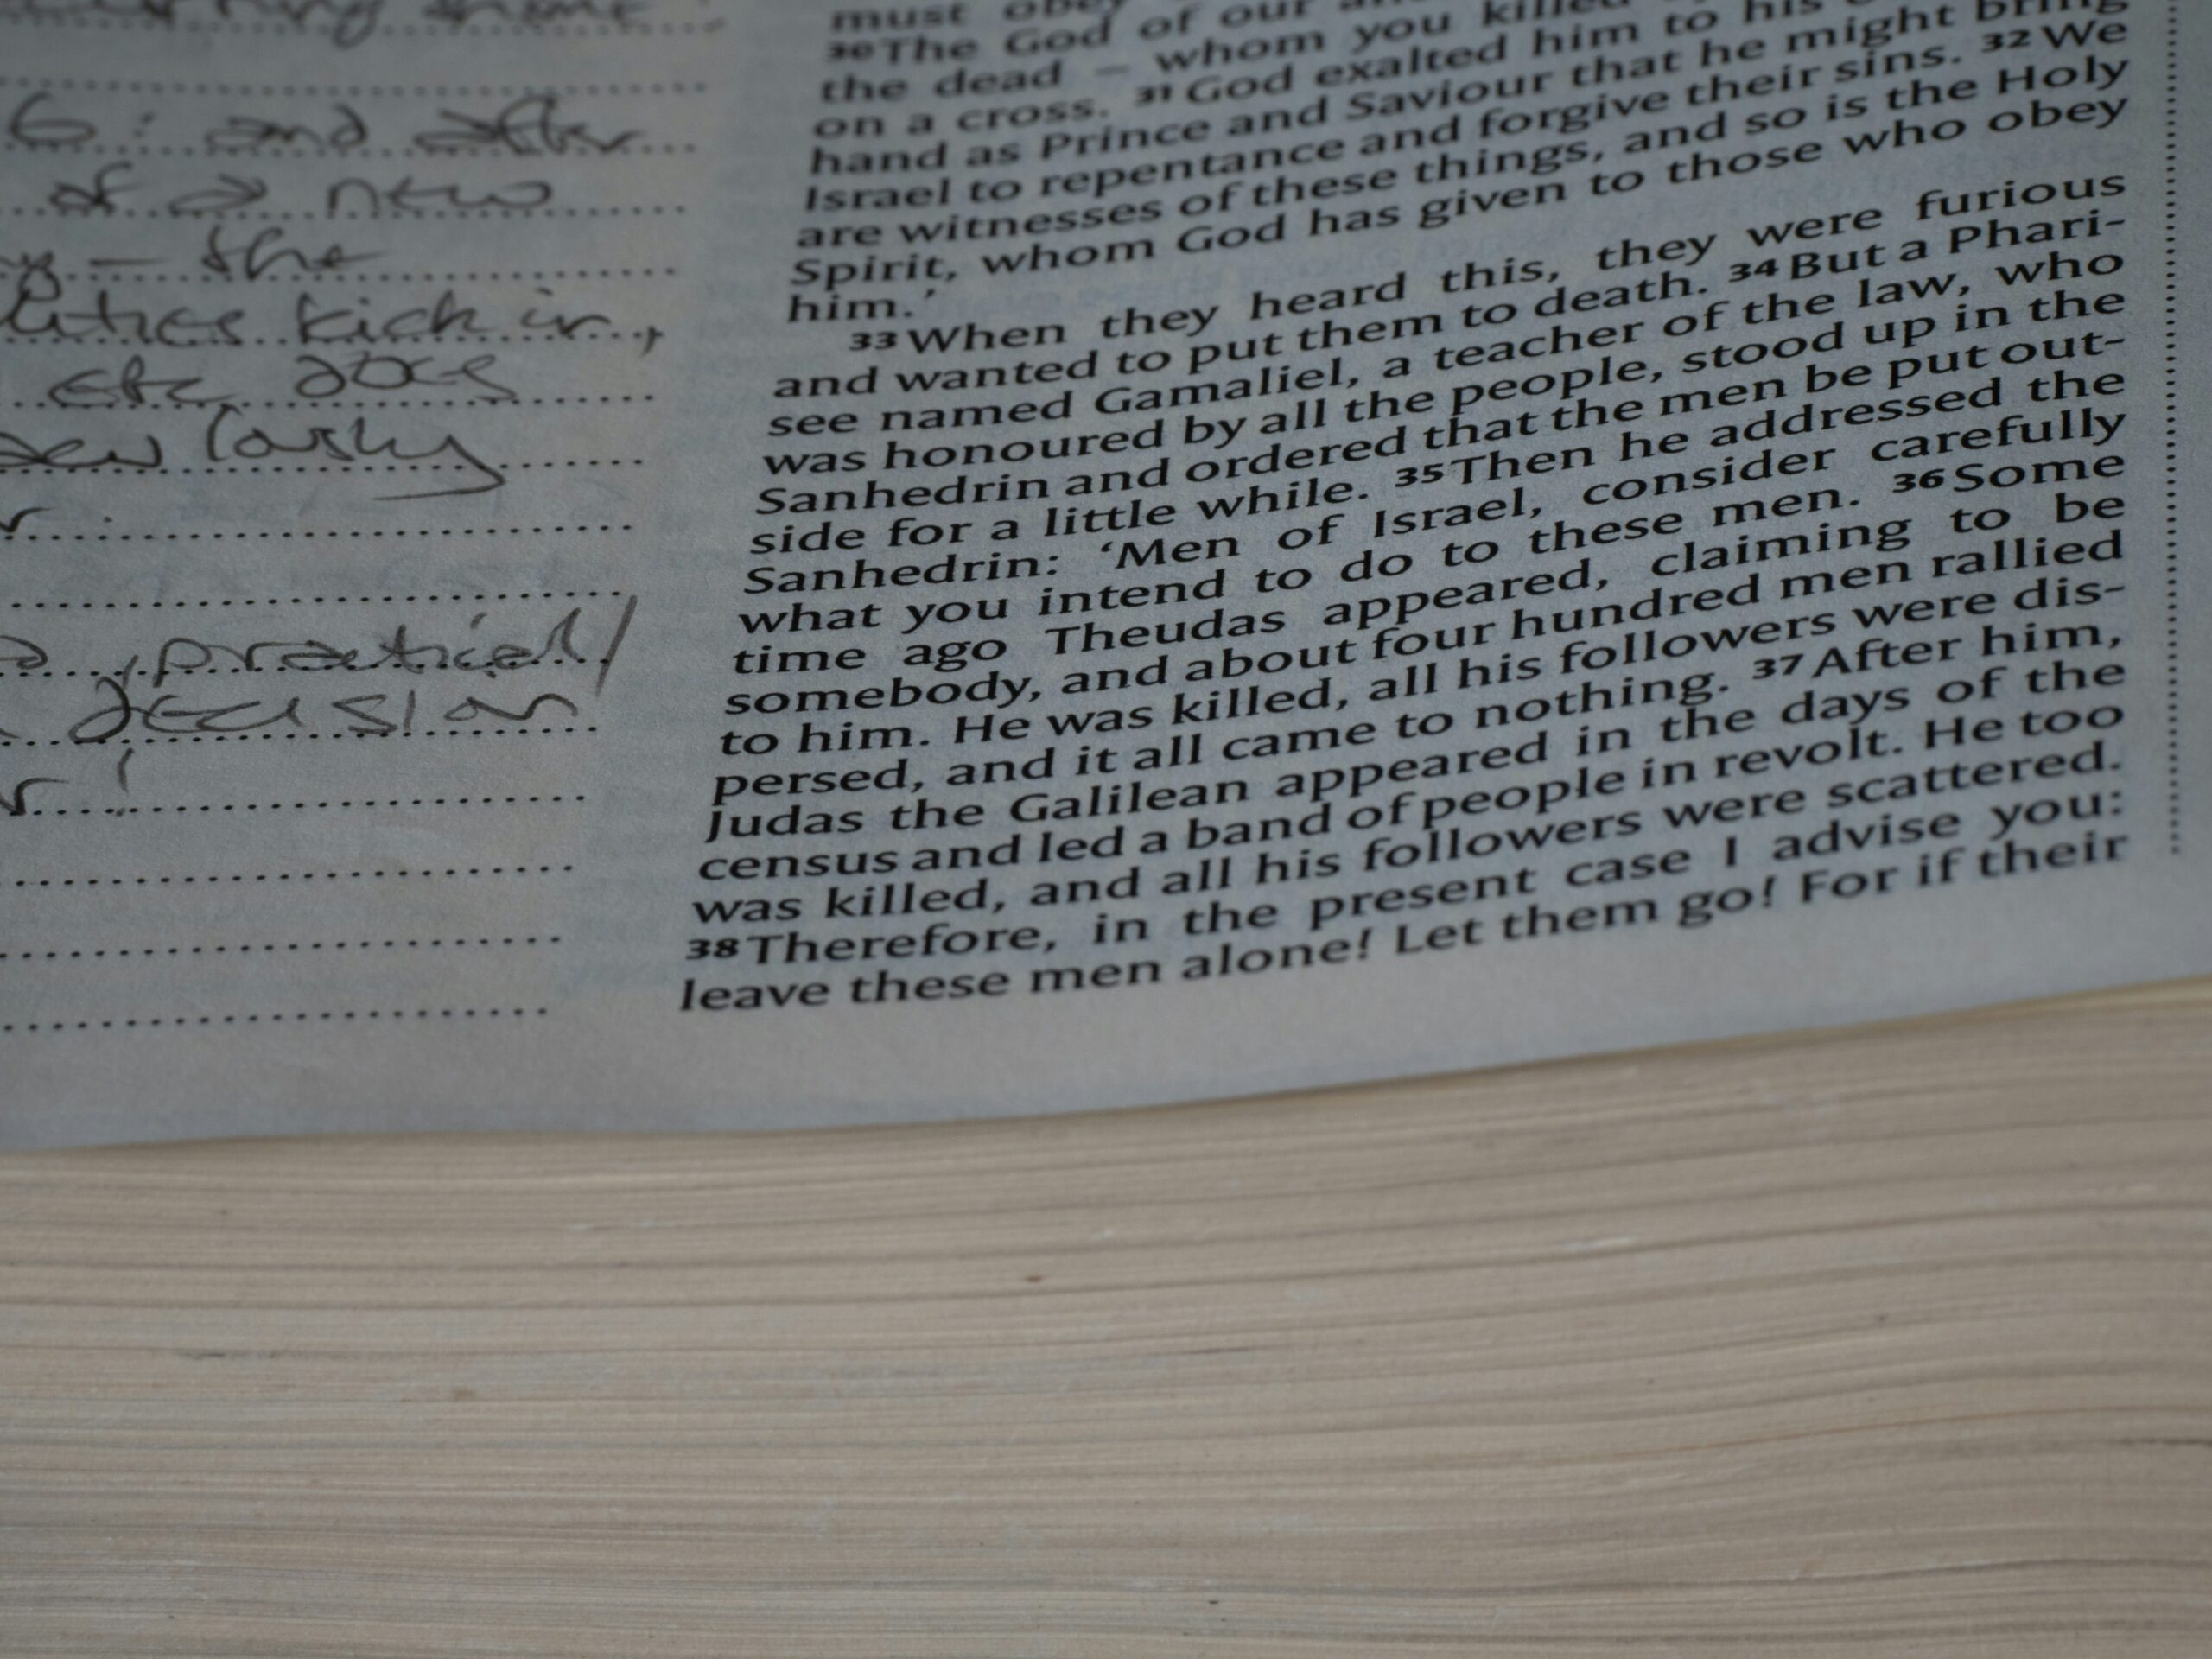 6: and after
of a new
– the
kick in,
etc does
practical/
decision
must obey
30 The God of our
the dead – whom you killed
on a cross. 31 God exalted him to his
hand as Prince and Saviour that he might bring
Israel to repentance and forgive their sins. 32 We
are witnesses of these things, and so is the Holy
Spirit, whom God has given to those who obey
him.’
33 When they heard this, they were furious
and wanted to put them to death. 34 But a Phari-
see named Gamaliel, a teacher of the law, who
was honoured by all the people, stood up in the
Sanhedrin and ordered that the men be put out-
side for a little while. 35 Then he addressed the
Sanhedrin: ‘Men of Israel, consider carefully
what you intend to do to these men. 36 Some
time ago Theudas appeared, claiming to be
somebody, and about four hundred men rallied
to him. He was killed, all his followers were dis-
persed, and it all came to nothing. 37 After him,
Judas the Galilean appeared in the days of the
census and led a band of people in revolt. He too
was killed, and all his followers were scattered.
38 Therefore, in the present case I advise you:
leave these men alone! Let them go! For if their